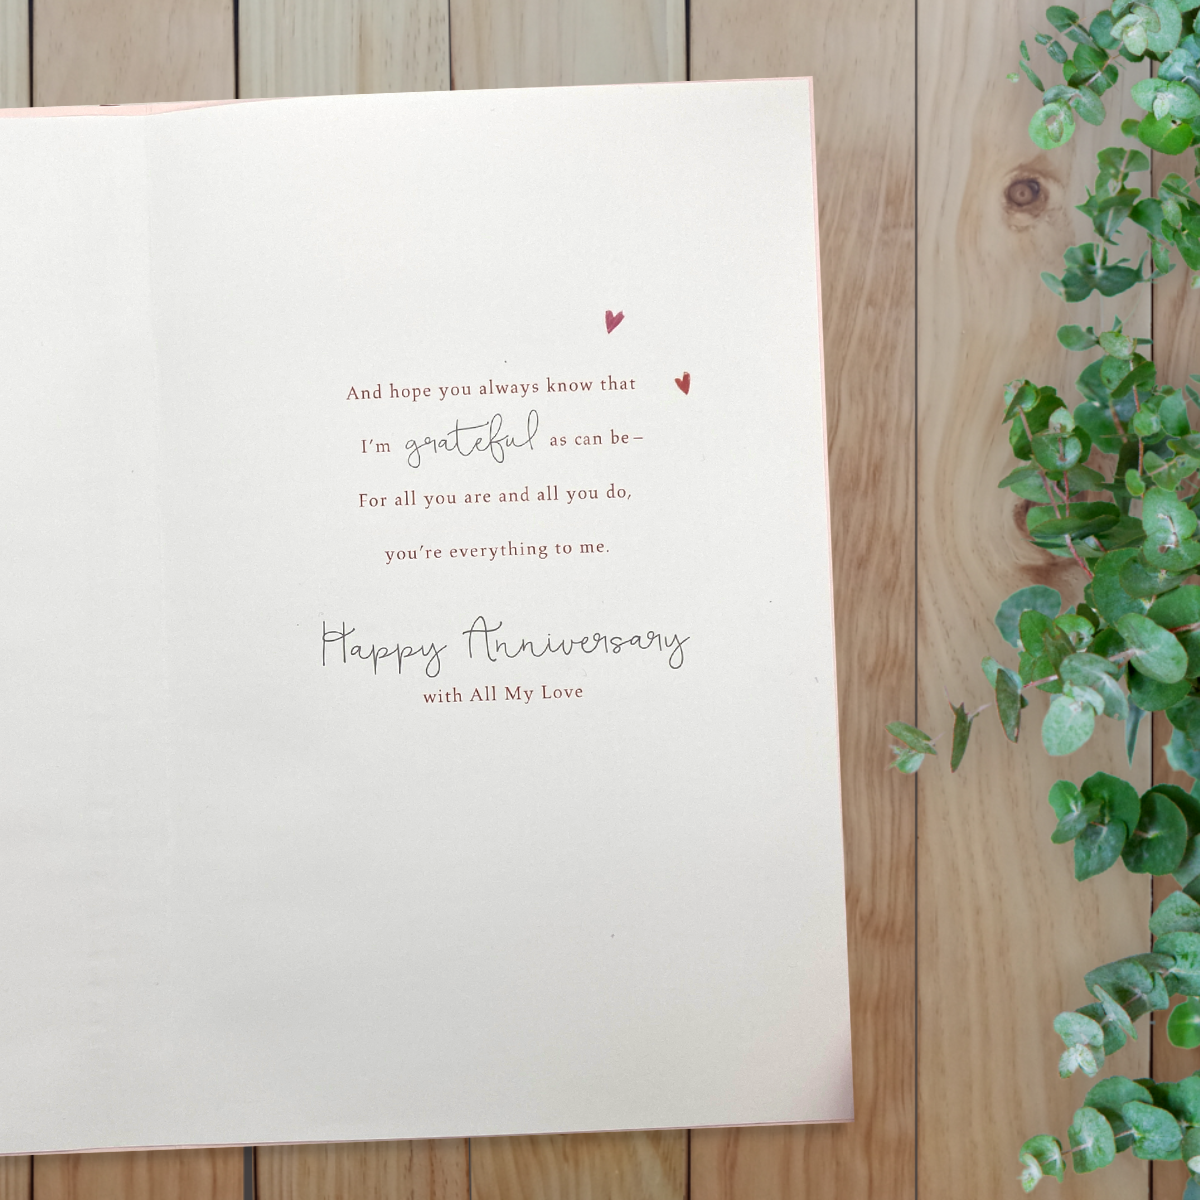 And hope you always know that
I'm grateful as can be–
For all you are and all you do,
you're everything to me.
Happy Anniversary
with All My Love